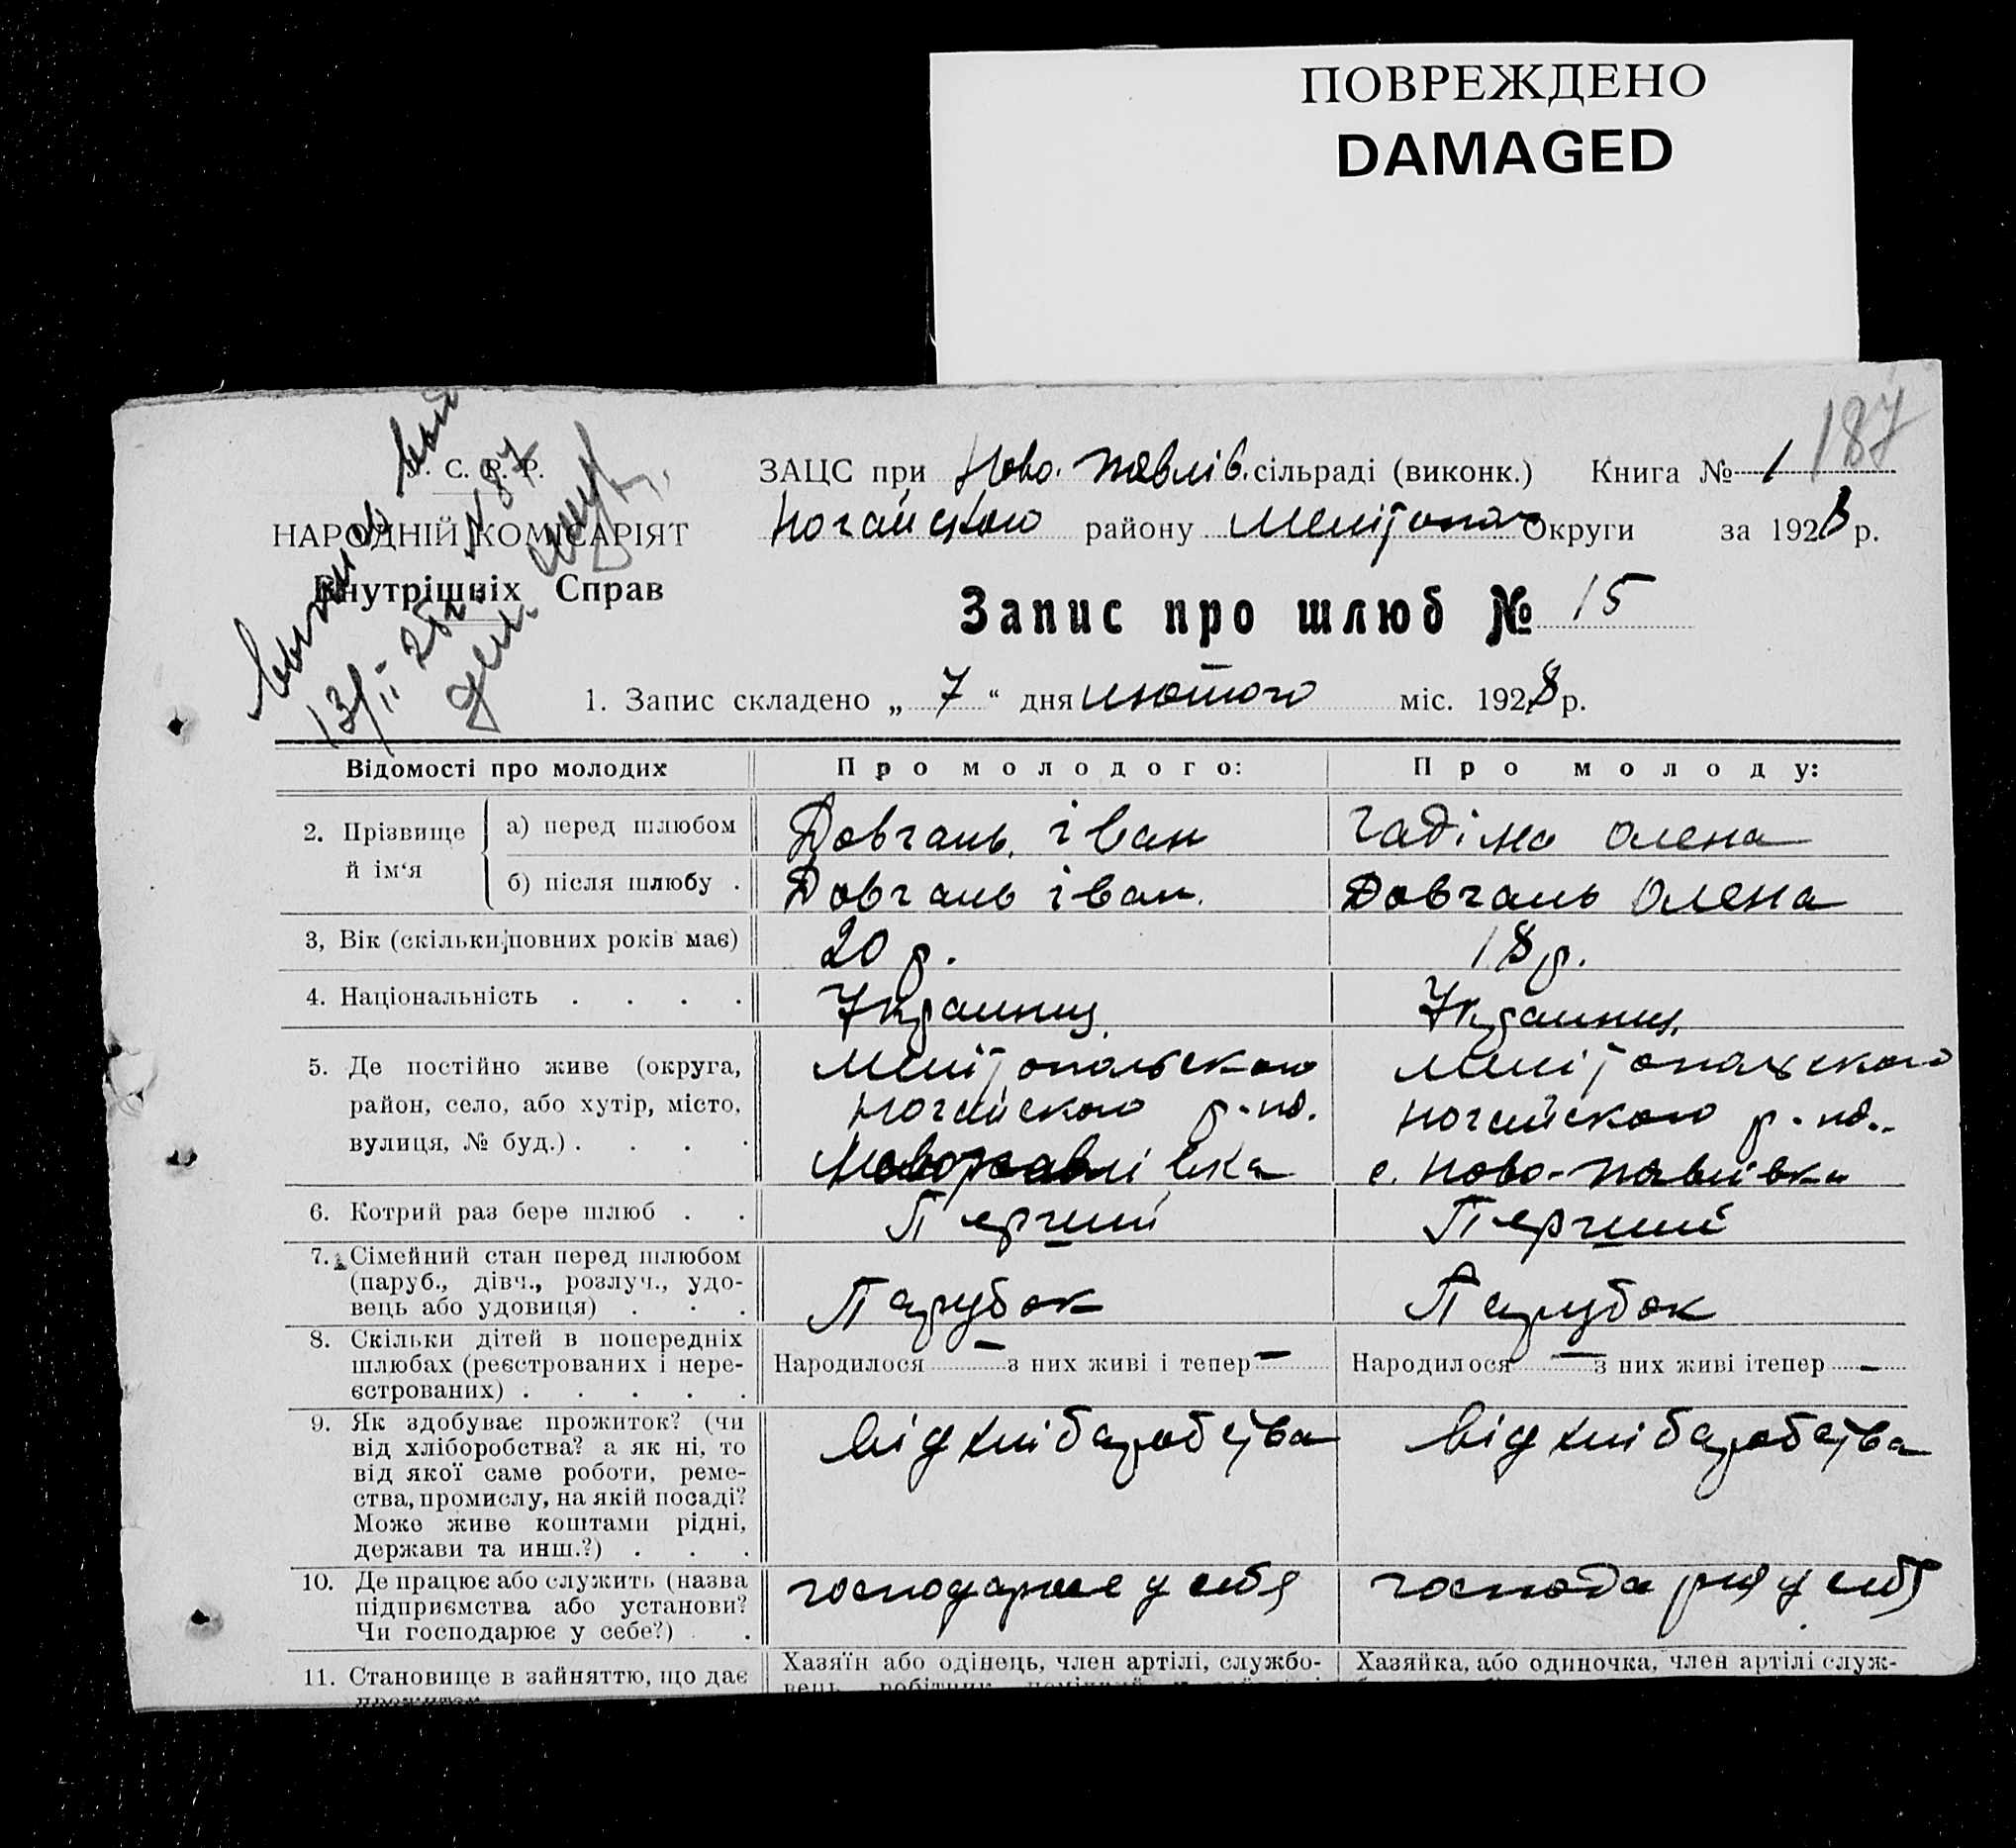 ПОВРЕЖДЕНО
DAMAGED
187
С. Р. Р.
ЗАЦС при Ново. Павлів. сільраді (виконк.) Книга № 1
НАРОДНІЙ КОМІСАРІЯТ
Ногайского району Мелітопол Округи за 1928 р.
Внутрішніх Справ
Запис про шлюб № 15
13/II 28 г. N 87
1. Запис складено „ 7 “ дня лютого міс. 1928 р.
Відомості про молодих
Про молодого:
Про молоду:
2. Прізвище й ім‘я
а) перед шлюбом
Довгань Іван
Гадіна Олена
б) після шлюбу .
Довгань Іван.
Довгань Олена
3, Вік (скільки повних років має)
20 р.
18 р.
4. Національність . . . .
Украинец
Украинец
5. Де постійно живе (округа,
район, село, або хутір, місто,
вулиця, № буд.) . . . .
Мелітопольского
Ногайского р-на.
Новопавлівка
Мелітопольского
Ногайского р-на..
с. Ново-Павлівка
6. Котрий раз бере шлюб . .
Перший
Перший
7. Сімейний стан перед шлюбом
(паруб., дівч., розлуч., удо-
вець або удовиця) . . .
Парубок
Парубок
8. Скільки дітей в попередніх
шлюбах (реєстрованих і нере-
єстрованих) . . . . .
Народилося — з них живі і тепер —
Народилося — з них живі ітепер —
9. Як здобуває прожиток? (чи
від хліборобства? а як ні, то
від якої саме роботи, реме-
ства, промислу, на якій посаді?
Може живе коштами рідні,
держави та инш.?) . . .
від хлібаробства
від хлібаробства
10. Де працює або служить (назва
підприємства або установи?
Чи господарює у себе?) . .
господарює у себя
господария у себя
11. Становище в зайняттю, що дає
прожиток
Хазяїн або одінець, член артілі, службо-
Хазяйка, або одиночка, член артілі служ-